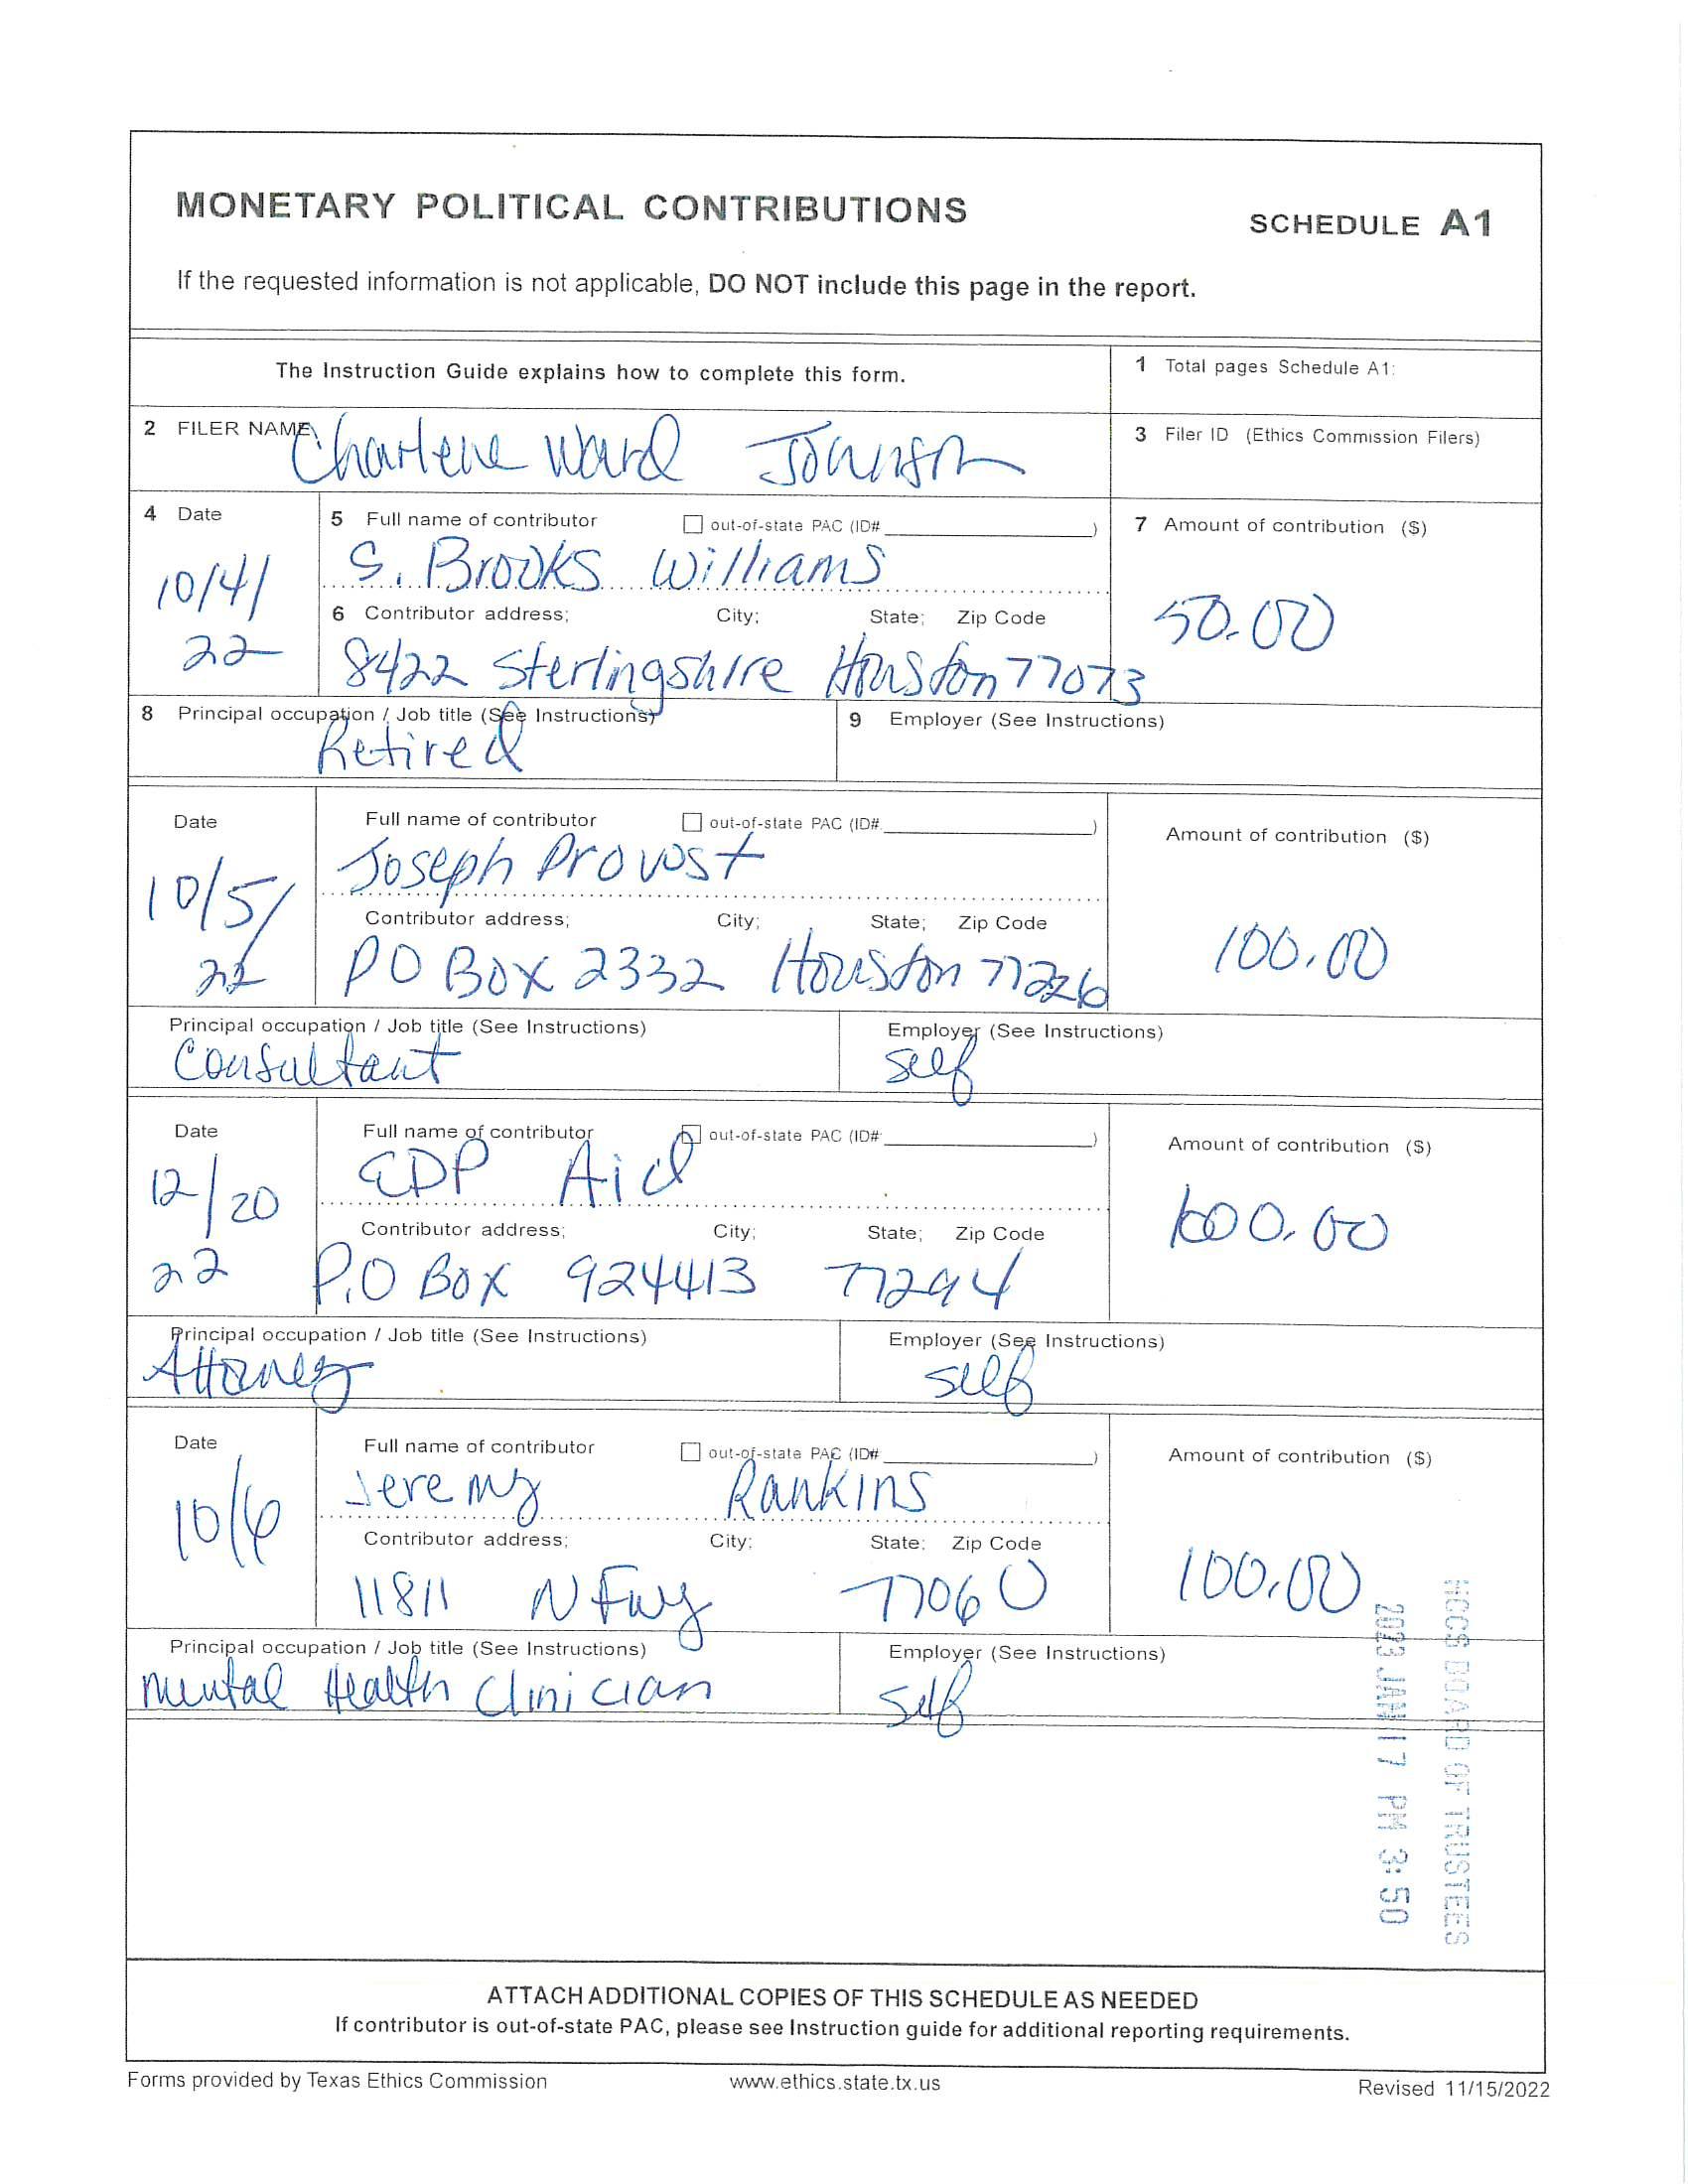 MONETARY POLITICAL CONTRIBUTIONS
SCHEDULE A1
If the requested information is not applicable, DO NOT include this page in the report.
The Instruction Guide explains how to complete this form.
1 Total pages Schedule A1:
2 FILER NAME Charlene Ward Johnson
3 Filer ID (Ethics Commission Filers)
4 Date
5 Full name of contributor
out-of-state PAC (ID#
)
7 Amount of contribution ($)
S. Brooks Williams
10/4/
22
6 Contributor address; City; State; Zip Code
50.00
8422 Sterlingshire Houston 77073
8 Principal occupation / Job title (See Instructions)
9 Employer (See Instructions)
Retired
Date
Full name of contributor
out-of-state PAC (ID#
)
Amount of contribution ($)
Joseph Provost
10/5/
22
Contributor address; City; State; Zip Code
100.00
PO Box 2332 Houston 77226
Principal occupation / Job title (See Instructions)
Employer (See Instructions)
Consultant
self
Date
Full name of contributor
out-of-state PAC (ID#
)
Amount of contribution ($)
EDP Aid
12/20
22
Contributor address; City; State; Zip Code
P.O Box 924413 77294
Principal occupation / Job title (See Instructions)
Employer (See Instructions)
Attorney
self
Date
Full name of contributor
out-of-state PAC (ID#
)
Amount of contribution ($)
Jeremy Rankins
10/6
Contributor address; City; State; Zip Code
100.00
11811 N Fwy 77060
Principal occupation / Job title (See Instructions)
Employer (See Instructions)
Mental Health Clinician
self
HCCS BOARD OF TRUSTEES
2023 JAN 17 PM 3:50
ATTACH ADDITIONAL COPIES OF THIS SCHEDULE AS NEEDED
If contributor is out-of-state PAC, please see Instruction guide for additional reporting requirements.
Forms provided by Texas Ethics Commission
www.ethics.state.tx.us
Revised 11/15/2022